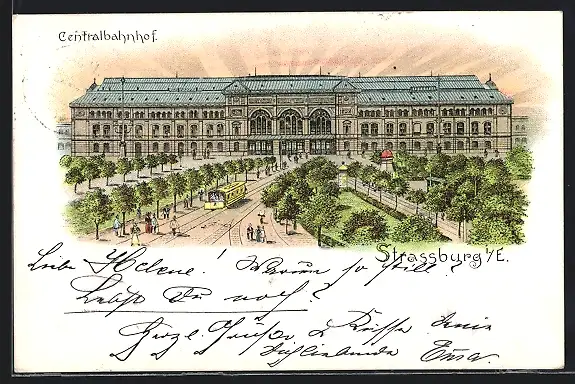 Centralbahnhof.
Strassburg i/E.
Liebe Helene! Warum so still?
Lebst Du noch?
Herzl. Grüße & Küsse deine
Dichliebende Erna.